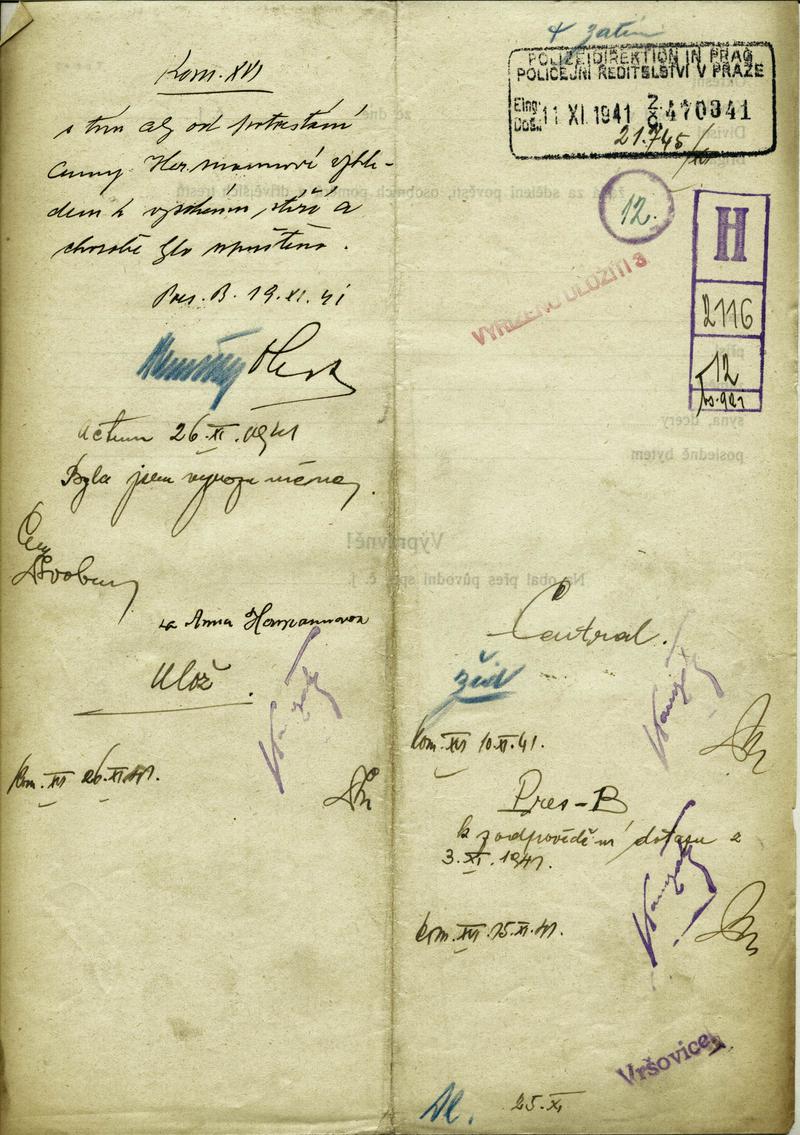 Kom. XVI
s tím aby od potrestání
Anny Hermannové vzhle-
dem k vysokému stáří a
chorobě bylo upuštěno.
Pres. B. 19. XI. 41
Actum 26. XI. 1941
Byla jsem vyrozuměna.
Svobody
Anna Hermannová
Ulož
Kom. XVI 26. XI. 41.
POLIZEIDIREKTION IN PRAG
POLICEJNÍ ŘEDITELSTVÍ V PRAZE
Eing.
Doš. 11 XI. 1941 Z. Č. 470841
21.745/
12.
VYŘÍZENO ULOŽITI
H
2116
12
syna, dcery
posledně bytem
Výpravně!
Na obal přes původní spis č. j.
Central.
žid
Kom. XVI 10. XI. 41.
Pres-B
k zodpovědění dotazu z
3. XI. 1941.
Kom. XVI. 15. XI. 41.
Vršovice
25. XI